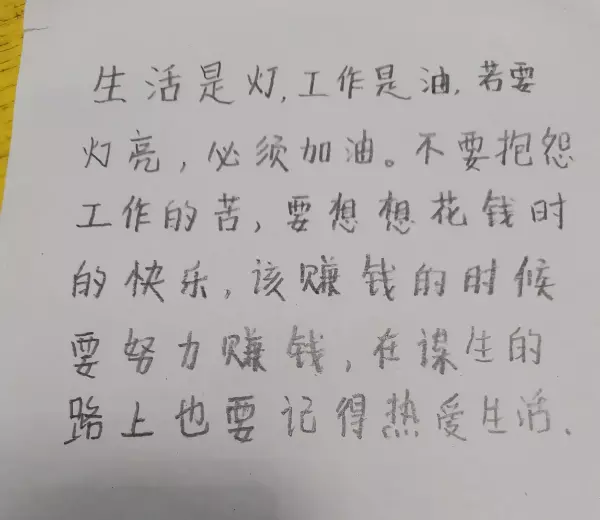 生活是灯,工作是油,若要
灯亮,必须加油。不要抱怨
工作的苦,要想想花钱时
的快乐,该赚钱的时候
要努力赚钱,在谋生的
路上也要记得热爱生活、